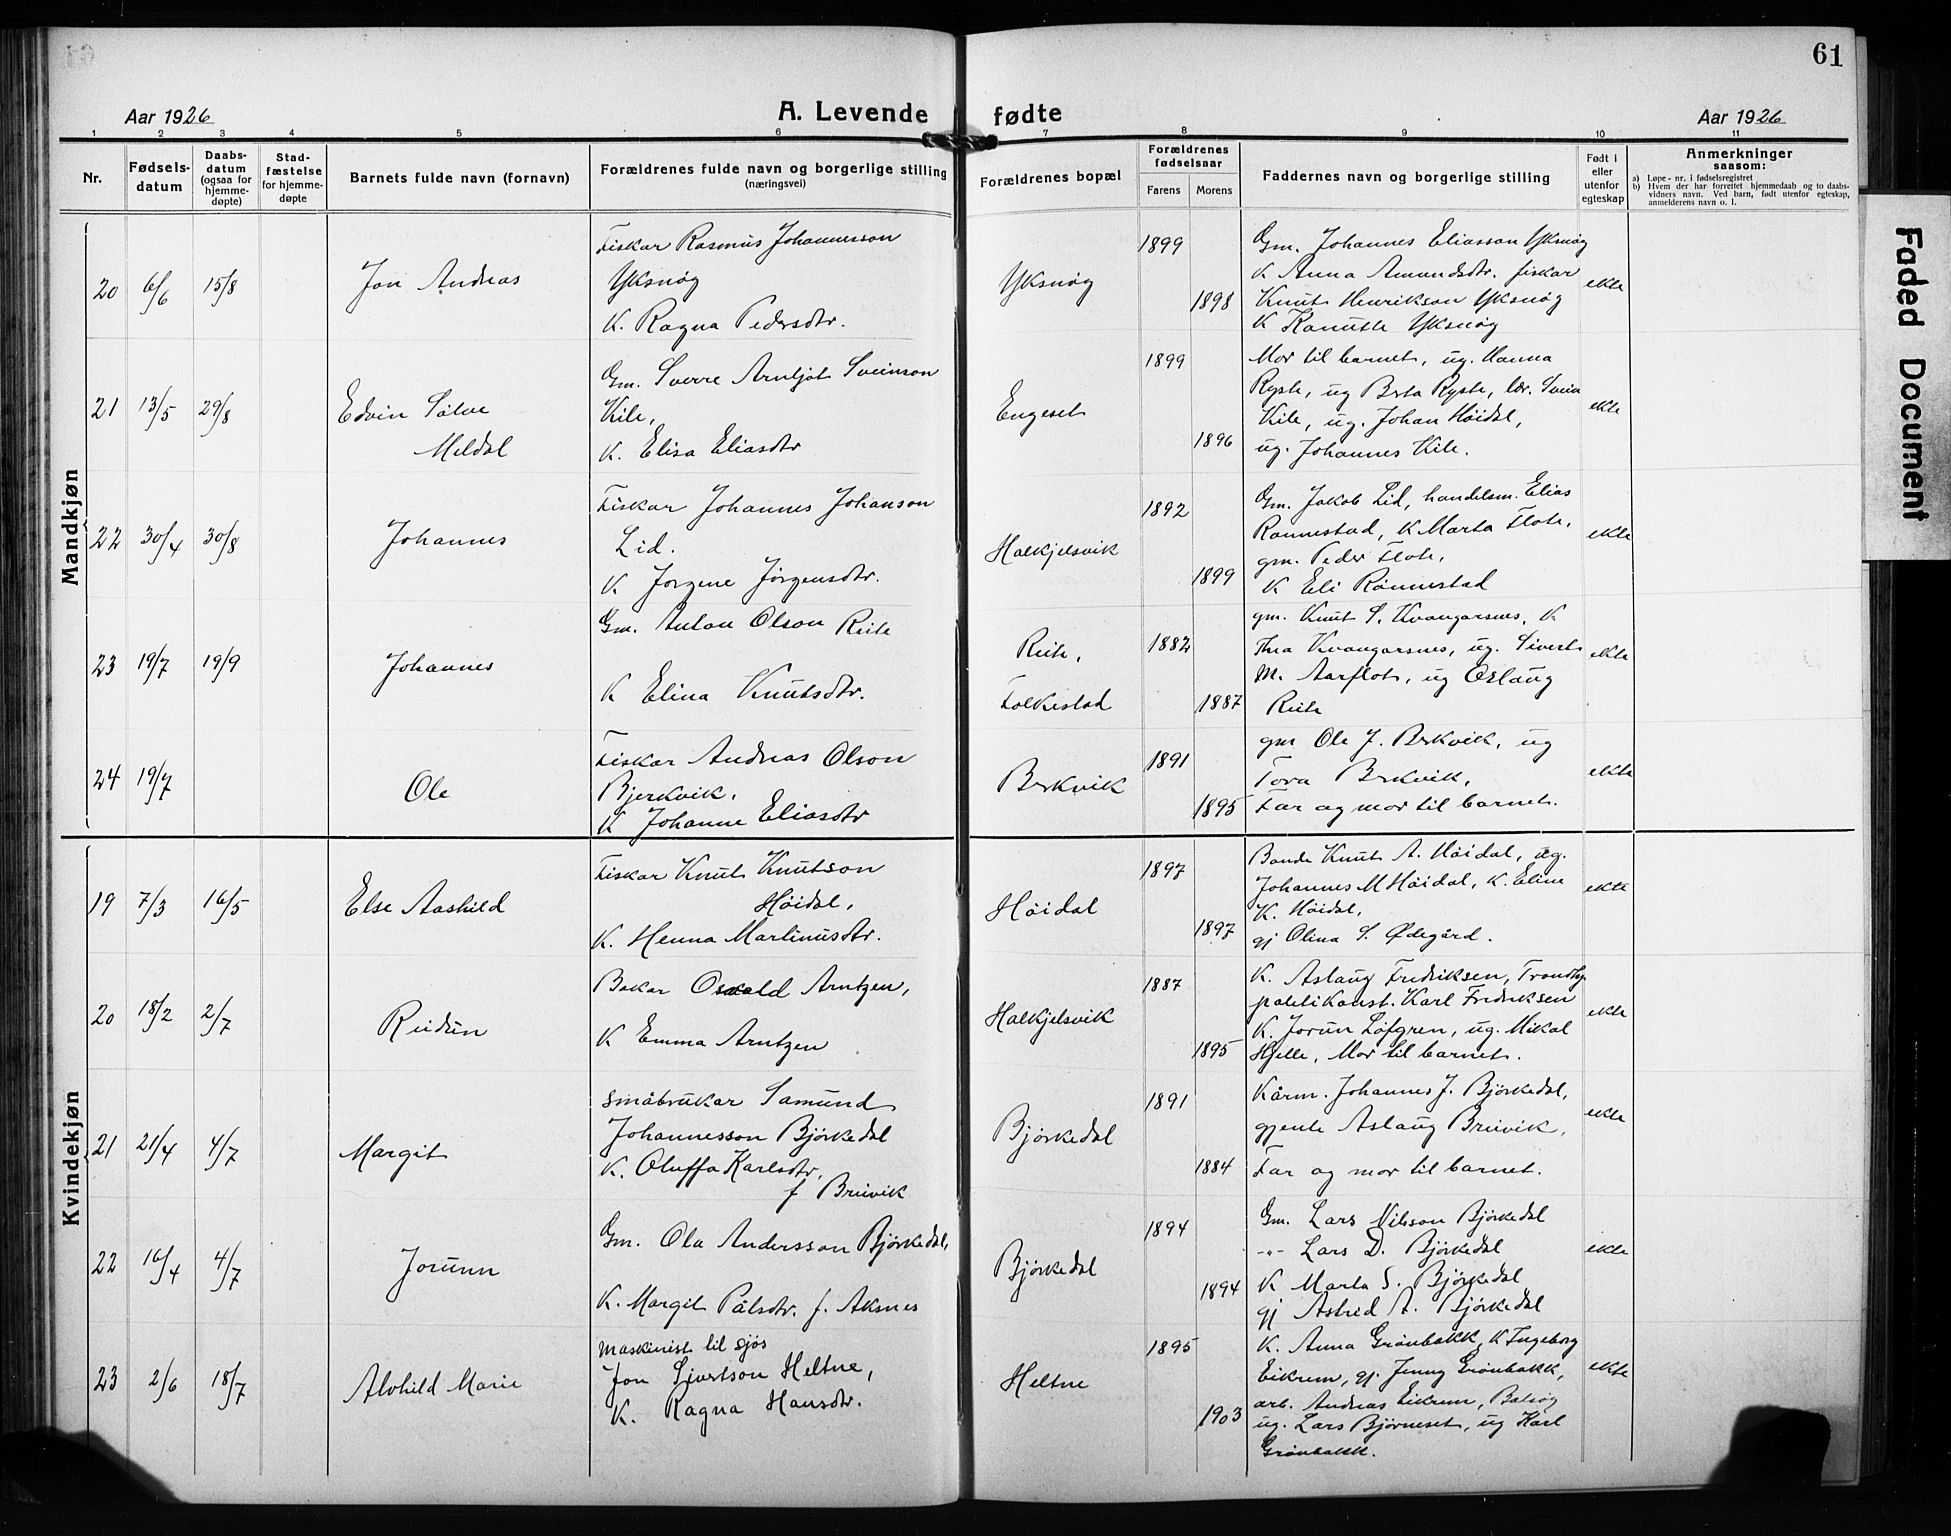 61
Aar 1926
A. Levende fødte
Aar 1926
1 2 3 4 5 6 7 8 9 10 11
Nr.
Fødsels-
datum
Daabs-
datum
(ogsaa for
hjemme-
døpte)
Stad-
fæstelse
for hjemme-
døpte
Barnets fulde navn (fornavn)
Forældrenes fulde navn og borgerlige stilling
(næringsvei)
Forældrenes bopæl
Forældrenes
fødselsaar
Farens
Morens
Faddernes navn og borgerlige stilling
Født i
eller
utenfor
egteskap
Anmerkninger
saasom:
a) Løpe-nr. i fødselsregistret
b) Hvem der har forrettet hjemmedaab og to daabs-
vidners navn. Ved barn, født utenfor egteskap,
anmelderens navn o. l.
Faded Document
Mandkjøn
20 6/6 15/8
Jon Andreas
Fiskar Rasmus Johannesson
Yksnøg
K. Ragna Pedersdtr.
Yksnøg
1899
1898
Gm. Johannes Eliasson Yksnøg
K Anna Amundsdtr. fiskar
Knut Henrikson Yksnøg
K Kanutte Yksnøg
ekte
21 13/5 29/8
Edvin Sölve
Meldal
Gm. Sverre Arnljot Sveinson
Kile,
K. Elisa Eliasdtr
Engeset
1899
1896
Mor til barnet, ug. Hanna
Ryste, ug Berta Ryste, lær. Svein
Kile, ug. Johan Höidal,
ug. Johannes Kile.
ekte
22 30/4 30/8
Johannes
Fiskar Johannes Johanson
Lid.
K Jorgine Jörgensdtr.
Halkjelsvik
1892
1899
Gm. Jakob Lid, handelsm. Elias
Rønnestad, K Marta Flote,
gm. Peder Flote,
K Eli Rönnestad
ekte
23 19/7 19/9
Johannes
Gm. Anton Olson Reite
K Elina Knutsdtr.
Reite,
Folkestad
1882
1887
gm. Knut S. Kvangarsnes, K
Thea Kvangarsnes, ug. Sivert
M. Aarflot, ug Oslaug
Reite
ekte
24 19/7
Ole
Fiskar Andreas Olson
Bjerkvik.
K Johanne Eliasdtr
Berkvik
1891
1895
gm Ole J. Berkvik, ug
Tora Berkvik,
Far og mor til barnet.
ekte
Kvindekjøn
19 7/3 16/5
Else Aashild
Fiskar Knut Knutson
Höidal,
K. Henna Martinusdtr.
Höidal
1897
1897
Bonde Knut A. Höidal, ug.
Johannes M Höidal, K. Eline
K. Höidal,
gj Olina S. Ødegård.
ekte
20 18/2 2/7
Reidun
Bakar Oskald Arntzen,
K Emma Arntzen
Halkjelsvik
1887
1895
K. Aslaug Fredriksen, Trondhj.
politikonst. Karl Fredriksen
K. Jorun Löfgren, ug. Mikal
Hjelle, Mor til barnet.
ekte
21 21/4 4/7
Margit
småbrukar Samund
Johannesson Björkedal
K. Oluffa Karlsdtr,
f Bruvik
Björkedal
1891
1884
Kårm. Johannes J. Björkedal,
gjente Aslaug Bruvik,
Far og mor til barnet.
ekte
22 16/4 4/7
Jorunn
Gm. Ola Andersson Björkedal,
K. Margit Pålsdtr. f. Aksnes
Björkedal
1894
1894
Gm. Lars Nilsson Björkedal
-"- Lars D. Björkedal
K Marta S. Björkedal
gj Astrid A. Björkedal
ekte
23 2/6 18/7
Alvhild Marie
Maskinist til sjös
Jon Sivertson Heltne,
K. Ragna Hansdtr.
Heltne
1895
1903
K. Anna Grönbakk, K Ingeborg
Eikrem, gj. Jenny Grönbakk,
arb. Andreas Eikrem, Batsög
ug. Lars Björneset, ug Karl
Grönbakk.
ekte